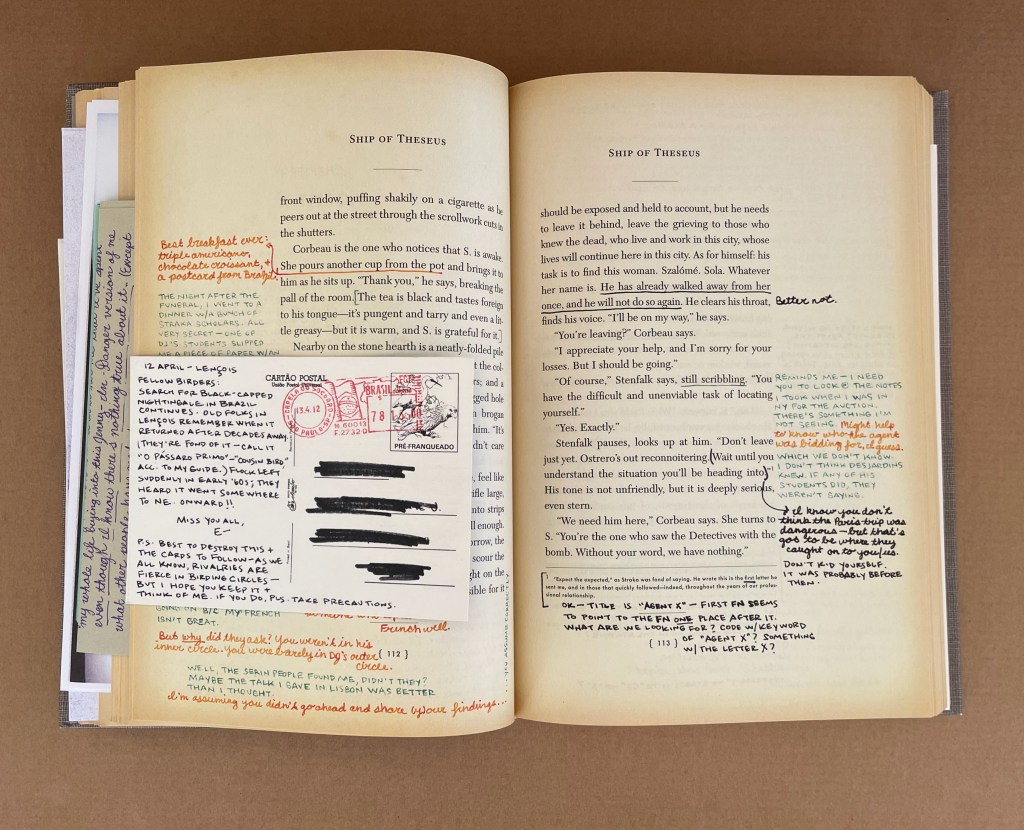 SHIP OF THESEUS
front window, puffing shakily on a cigarette as he
peers out at the street through the scrollwork cuts in
the shutters.
Corbeau is the one who notices that S. is awake.
She pours another cup from the pot and brings it to
him as he sits up. “Thank you,” he says, breaking the
pall of the room. [The tea is black and tastes foreign
to his tongue—it’s pungent and tarry and even a lit-
tle greasy—but it is warm, and S. is grateful for it.]
Nearby on the stone hearth is a neatly-folded pile
the col-
ers; and a
gged hole
n brogan
him. “It’s
dn’t care
, feel like
ific large,
into strips
ll enough.
orrow, the
scour the
ght on the
sible for it
{ 112 }
Best breakfast ever:
triple americano,
chocolate croissant, +
a postcard from Brazil.
THE NIGHT AFTER THE
FUNERAL, I WENT TO A
DINNER W/A BUNCH OF
STRAKA SCHOLARS. ALL
VERY SECRET – ONE OF
DJ'S STUDENTS SLIPPED
ME A PIECE OF PAPER W/AN
my whole life buying into this Jenny-in-Danger version of me
even though I know there's nothing true about it. (Except
what other
12 APRIL – LENÇOIS
FELLOW BIRDERS:
SEARCH FOR BLACK-CAPPED
NIGHTINGALE IN BRAZIL
CONTINUES. OLD FOLKS IN
LENÇOIS REMEMBER WHEN IT
RETURNED AFTER DECADES AWAY
(THEY'RE FOND OF IT – CALL IT
"O PÁSSARO PRIMO" – "COUSIN BIRD"
ACC. TO MY GUIDE.) FLOCK LEFT
SUDDENLY IN EARLY '60s; THEY
HEARD IT WENT SOMEWHERE
TO NE. ONWARD!!
MISS YOU ALL,
E–
P.S. BEST TO DESTROY THIS +
THE CARDS TO FOLLOW – AS WE
ALL KNOW, RIVALRIES ARE
FIERCE IN BIRDING CIRCLES –
BUT I HOPE YOU KEEP IT +
THINK OF ME. IF YOU DO, PLS. TAKE PRECAUTIONS.
CARTÃO POSTAL
BRASIL
13.4.12
SÃO PAULO-SP
PRÉ-FRANQUEADO
BEING ON B/C MY FRENCH
ISN'T GREAT.
French well.
But why did they ask? You weren't in his
inner circle. You were barely in DJ's outer
circle.
WELL, THE SERIN PEOPLE FOUND ME, DIDN'T THEY?
MAYBE THE TALK I GAVE IN LISBON WAS BETTER
THAN I THOUGHT.
I'm assuming you didn't go ahead and share your findings...
SHIP OF THESEUS
should be exposed and held to account, but he needs
to leave it behind, leave the grieving to those who
knew the dead, who live and work in this city, whose
lives will continue here in this city. As for himself: his
task is to find this woman. Szalómé. Sola. Whatever
her name is. He has already walked away from her
once, and he will not do so again. He clears his throat,
finds his voice. “I’ll be on my way,” he says.
“You’re leaving?” Corbeau says.
“I appreciate your help, and I’m sorry for your
losses. But I should be going.”
“Of course,” Stenfalk says, still scribbling. “You
have the difficult and unenviable task of locating
yourself.”
“Yes. Exactly.”
Stenfalk pauses, looks up at him. “Don’t leave
just yet. Ostrero’s out reconnoitering. Wait until you
understand the situation you’ll be heading into.”
His tone is not unfriendly, but it is deeply serious,
even stern.
“We need him here,” Corbeau says. She turns to
S. “You’re the one who saw the Detectives with the
bomb. Without your word, we have nothing.”
“Expect the expected,” as Straka was fond of saying. He wrote this in the first letter he
sent me, and in those that quickly followed—indeed, throughout the years of our profes-
sional relationship.
OK – TITLE IS "AGENT X" – FIRST FN SEEMS
TO POINT TO THE FN ONE PLACE AFTER IT.
WHAT ARE WE LOOKING FOR? CODE W/KEYWORD
OF "AGENT X"? SOMETHING
W/ THE LETTER X?
{ 113 }
Better not.
REMINDS ME – I NEED
YOU TO LOOK @ THE NOTES
I TOOK WHEN I WAS IN
NY FOR THE AUCTION.
THERE'S SOMETHING I'M
NOT SEEING. Might help
to know who the agent
was bidding for, I guess.
WHICH WE DON'T KNOW.
I DON'T THINK DESJARDINS
KNEW. IF ANY OF HIS
STUDENTS DID, THEY
WEREN'T SAYING.
I know you don't
think the Paris trip was
dangerous – but that's
got to be where they
caught on to you/us.
DON'T KID YOURSELF.
IT WAS PROBABLY BEFORE
THEN.